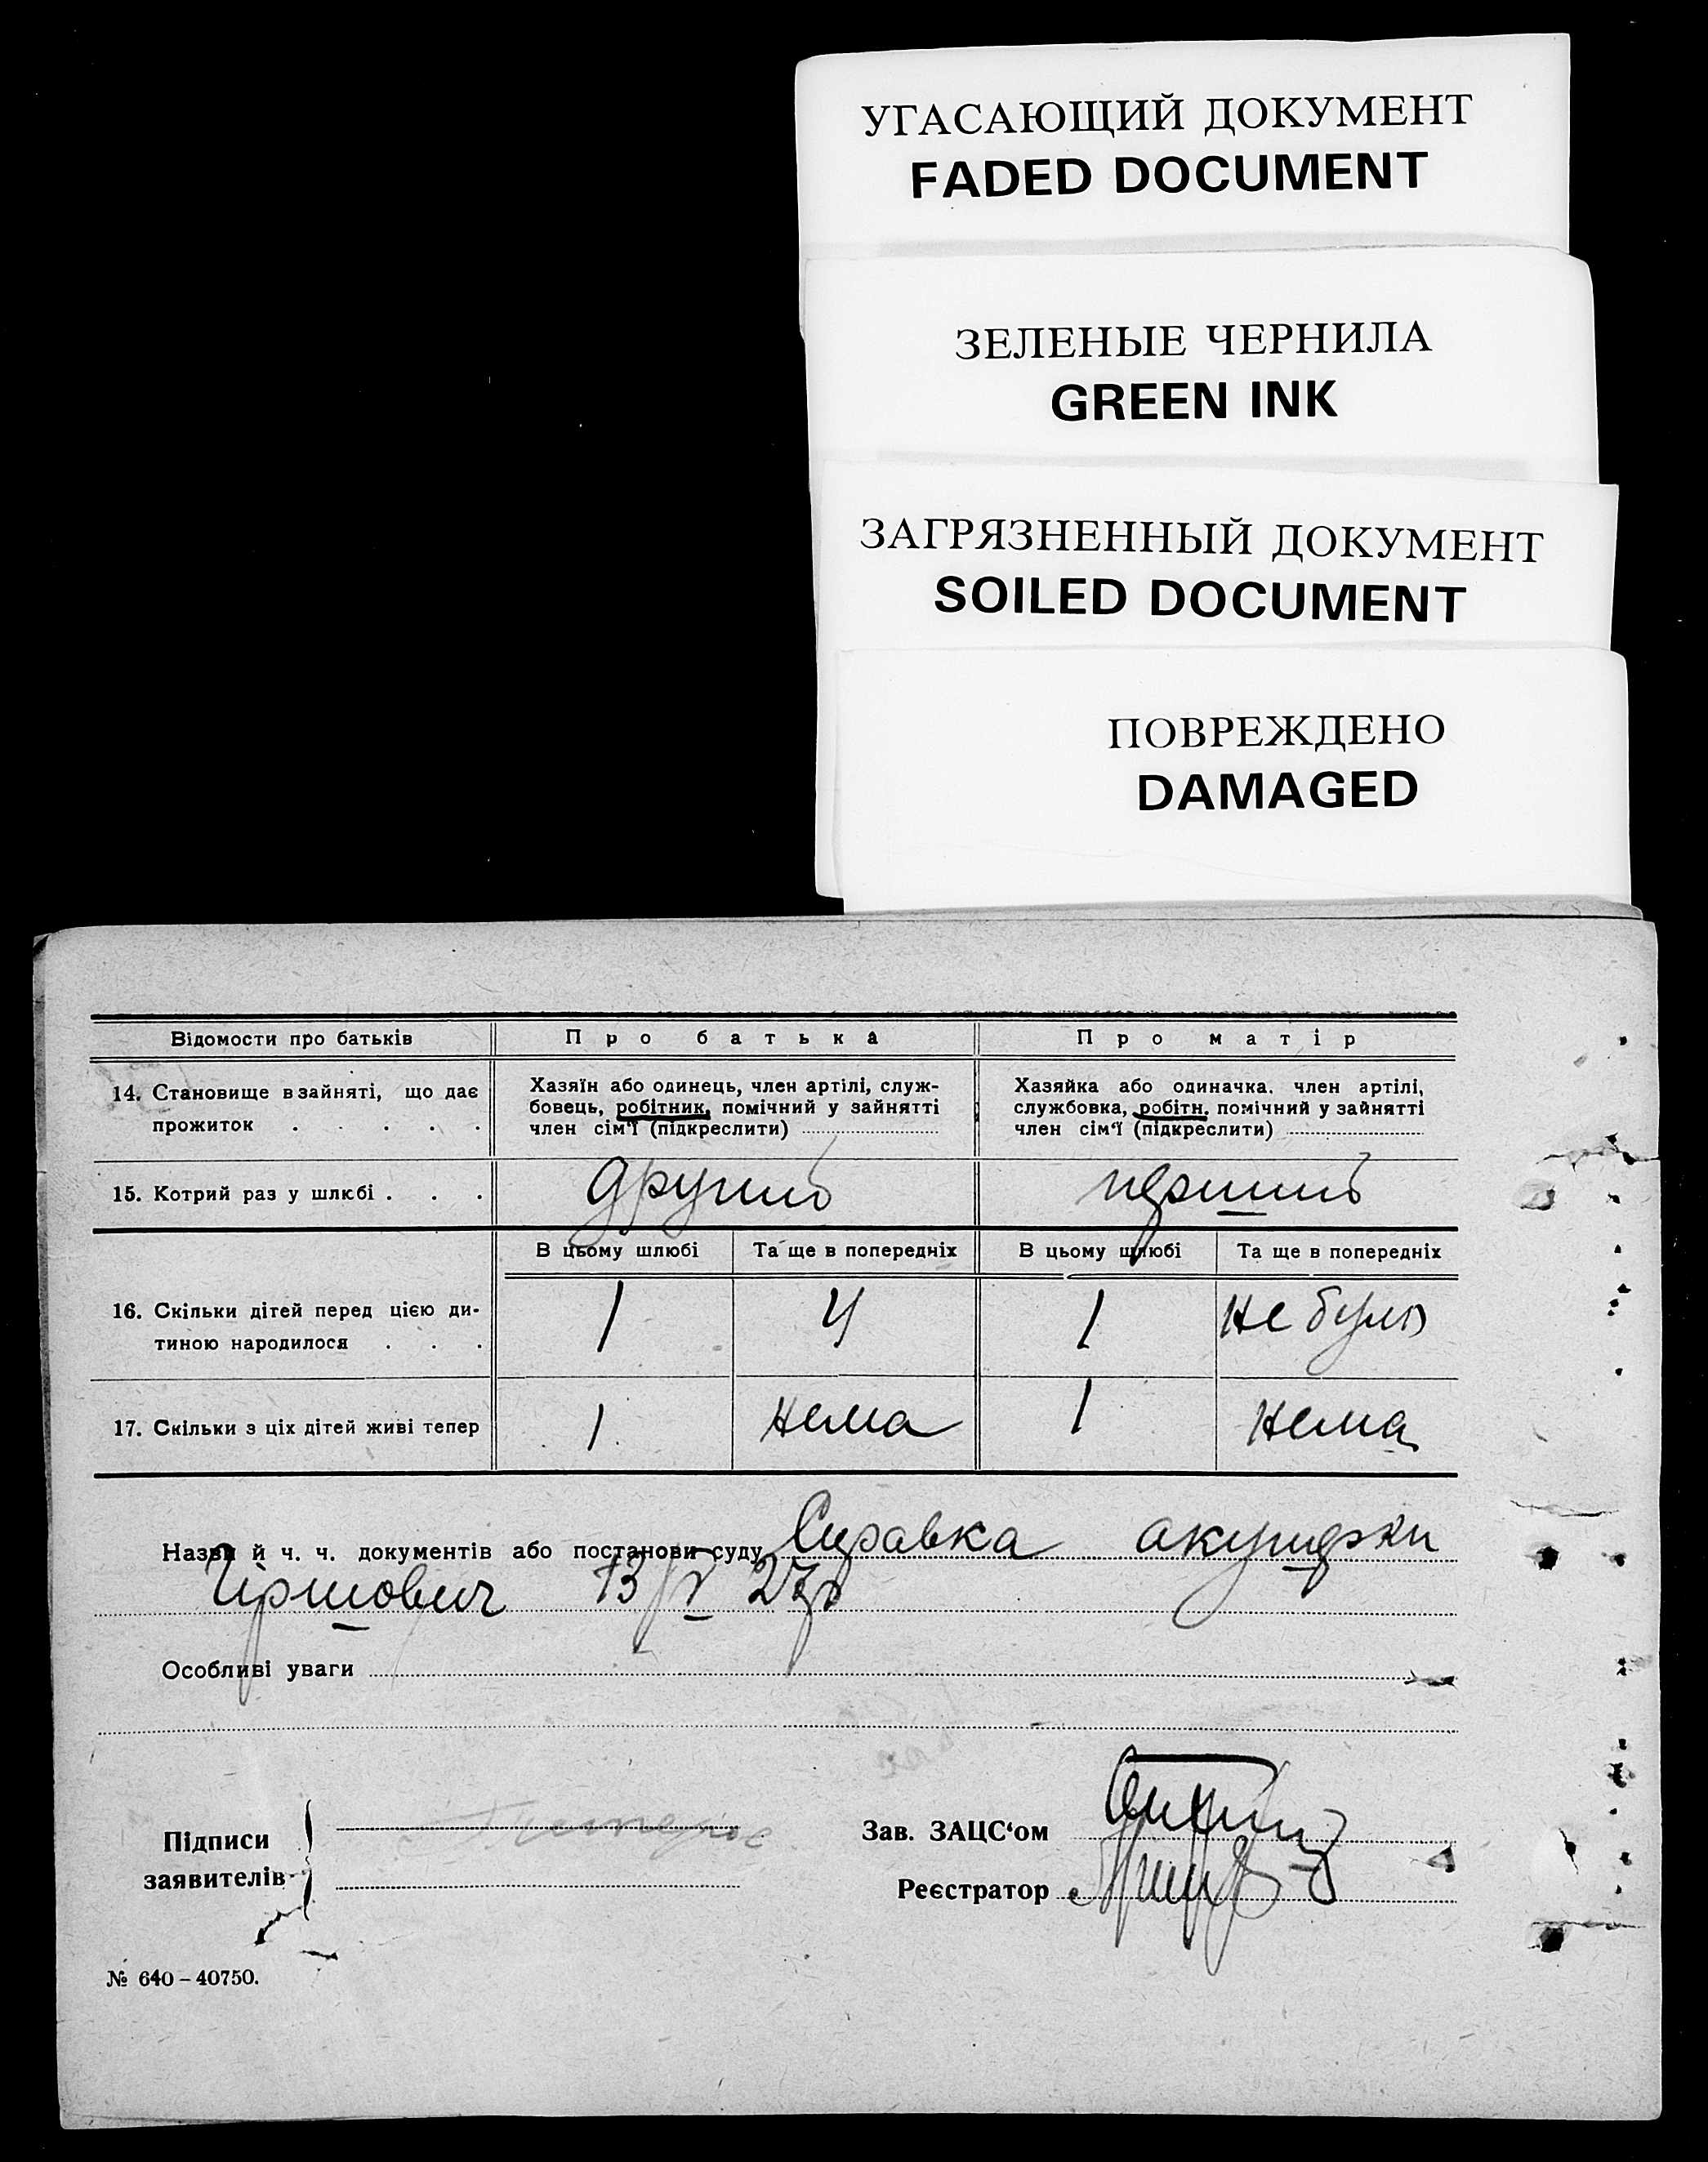 УГАСАЮЩИЙ ДОКУМЕНТ
FADED DOCUMENT
ЗЕЛЕНЫЕ ЧЕРНИЛА
GREEN INK
ЗАГРЯЗНЕННЫЙ ДОКУМЕНТ
SOILED DOCUMENT
ПОВРЕЖДЕНО
DAMAGED
Відомости про батьків Про батька Про матір
14. Становище в зайняті, що дає прожиток . . . . .
Хазяїн або одинець, член артілі, служ-
бовець, робітник, помічний у зайнятті
член сім'ї (підкреслити)
Хазяйка або одиначка, член артілі,
службовка, робітн. помічний у зайнятті
член сім'ї (підкреслити)
15. Котрий раз у шлюбі . . . другий перший
В цьому шлюбі Та ще в попередніх В цьому шлюбі Та ще в попередніх
16. Скільки дітей перед цією ди-
тиною народилося . . . 1 4 1 не було
17. Скільки з ціх дітей живі тепер 1 нема 1 нема
Назви й ч. ч. документів або постанови суду Справка акушерки
13/IV 27р
Особливі уваги
Підписи
заявителів
Зав. ЗАЦС'ом
Реєстратор
№ 640-40750.